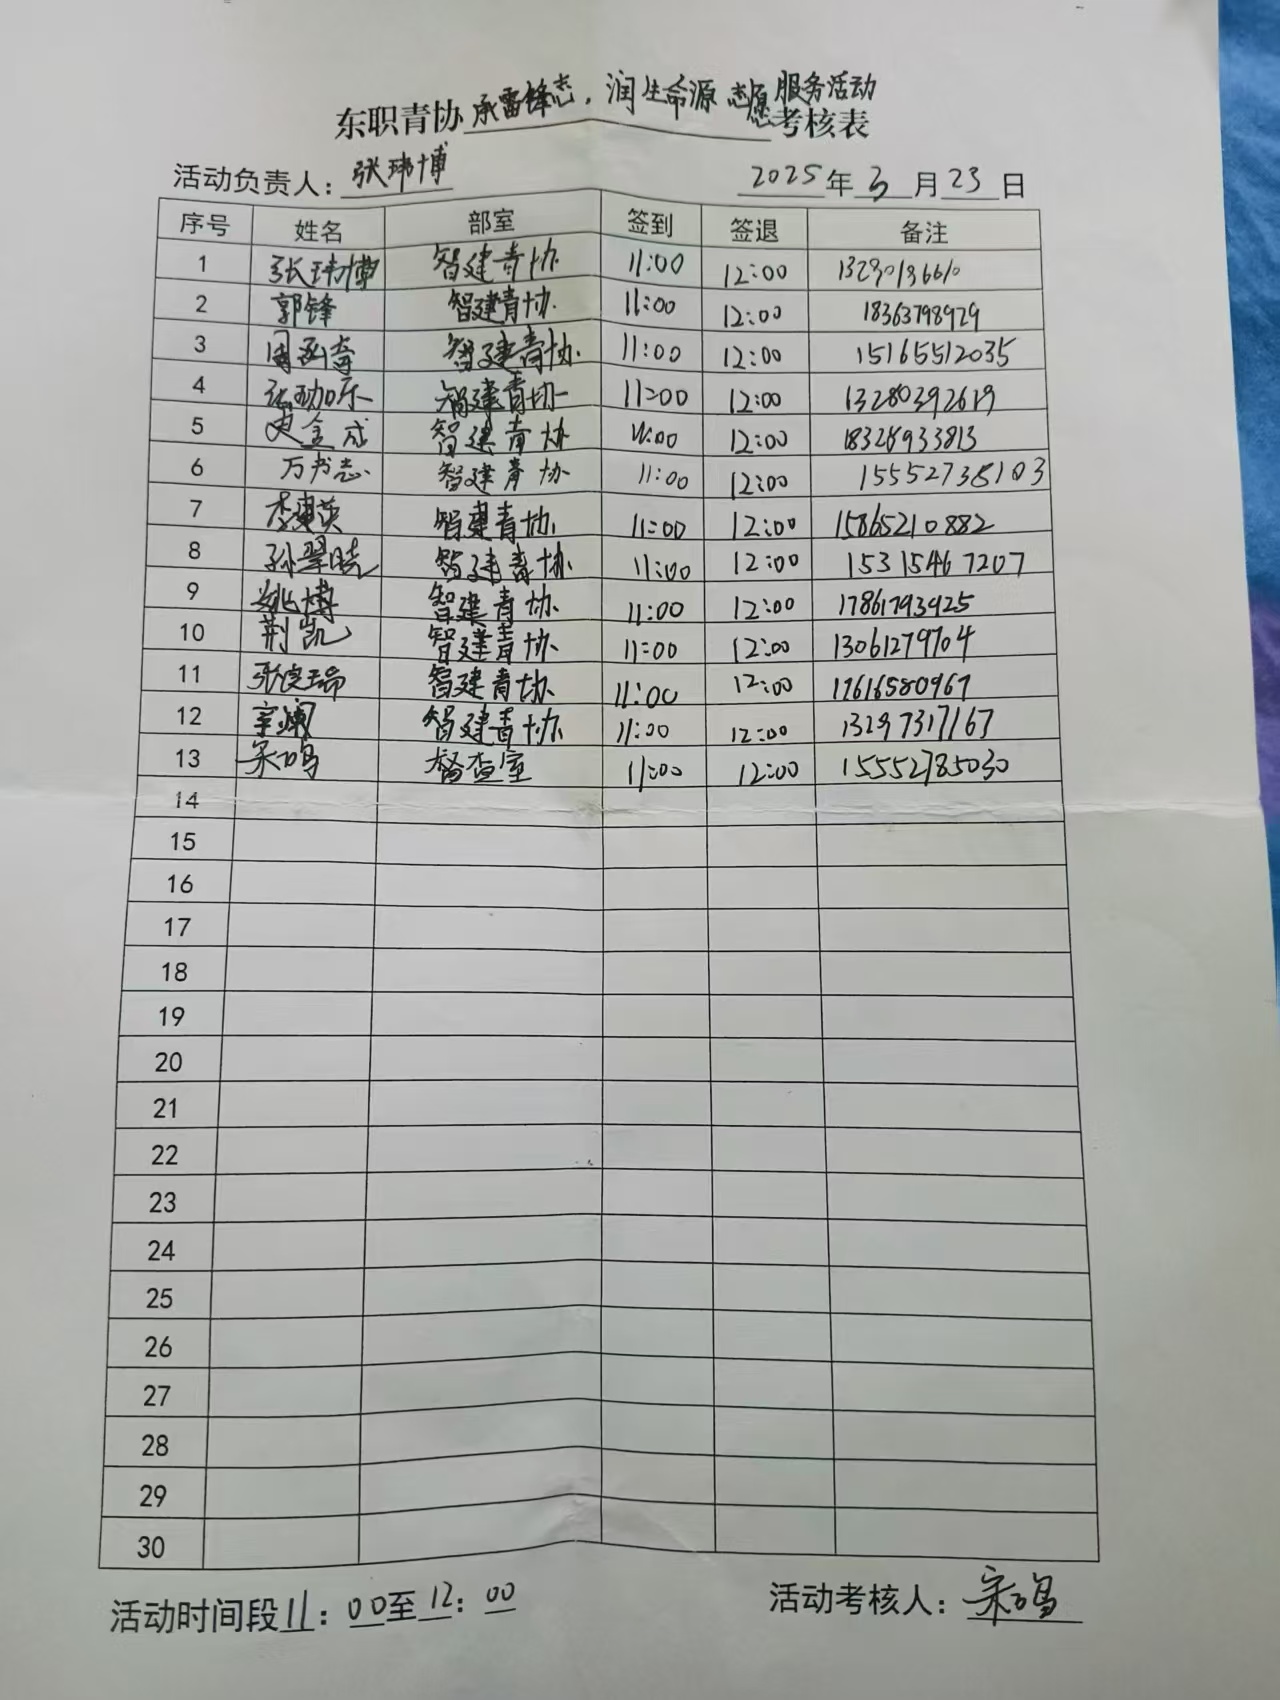 承雷锋志，润生命源 志愿服务活动
东职青协 考核表
活动负责人：张玮博 2025年3月23日
序号 姓名 部室 签到 签退 备注
1 张玮博 智建青协 11:00 12:00 13290136610
2 郭锋 智建青协 11:00 12:00 18363798929
3 智建青协 11:00 12:00 15165512035
4 智建青协 11:00 12:00 13280392619
5 史金成 智建青协 11:00 12:00 18328933813
6 万书志 智建青协 11:00 12:00 15552738103
7 李建英 智建青协 11:00 12:00 15865210882
8 孙翠晓 智建青协 11:00 12:00 15315467207
9 姚博 智建青协 11:00 12:00 17861793925
10 荆凯 智建青协 11:00 12:00 13061279704
11 智建青协 11:00 12:00 17616580967
12 智建青协 11:00 12:00 13297317167
13 宋鸣 督查室 11:00 12:00 15552785030
14
15
16
17
18
19
20
21
22
23
24
25
26
27
28
29
30
活动时间段11：00至12：00 活动考核人：宋鸣